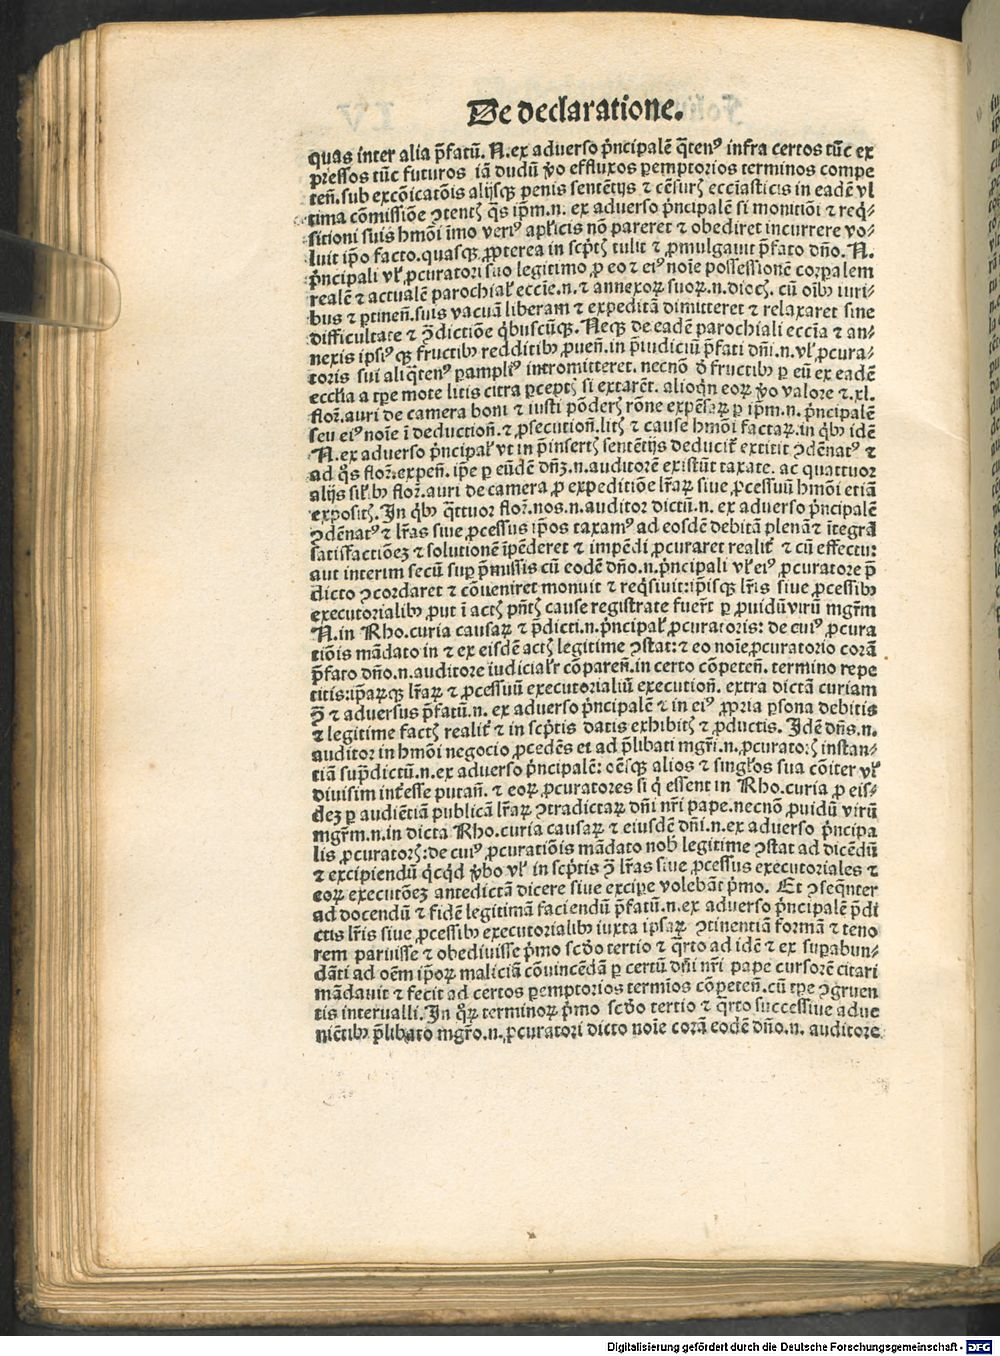 De declaratione.
quas inter alia p̄fatū. N. ex aduerso p̄ncipalē q̄tenꝰ infra certos tūc ex
pressos tūc futuros iā dudū ꝟo effluxos ꝑemptorios terminos compe
teñ. sub excōicatōis alijsqꝫ penis sentētijs ⁊ cēsurꝭ ecclāsticis in eadē vl
tima cōmissiōe ꝯtentꝭ q̄s ip̄m .n. ex aduerso p̄ncipalē si monitiōi ⁊ req̇-
sitioni suis hmōi īmo veriꝰ ap̄licis nō pareret ⁊ obediret incurrere vo-
luit ip̄o facto. quasqꝫ ꝓpterea in scptꝭ tulit ⁊ ꝓmulgauit p̄fato dño. N.
p̄ncipali vł ꝓcuratori suo legitimo ꝓ eo ⁊ eiꝰ noīe possessionē corꝑalem
realē ⁊ actualē parochial̕ eccīe .n. ⁊ annexoꝝ suoꝝ .n. diocꝭ. cū oībꝰ iuri-
bus ⁊ ꝑtineñ. suis vacuā liberam ⁊ expeditā dimitteret ⁊ relaxaret sine
difficultate ⁊ ꝯ̄dictiōe q̇buscūqꝫ. Neqꝫ de eadē parochiali eccīa ⁊ an-
nexis ipsiꝰqꝫ fructibꝰ redditibꝰ ꝓueñ. in p̄iudiciū p̄fati dñi .n. vł ꝓcura-
toris sui aliq̄tenꝰ ꝑampliꝰ intromitteret. necnō ꝺ̄ fructibꝰ ꝑ eū ex eadē
ecclīa a tp̄e mote litis citra ꝑceptꝭ si extarēt. alioqn̄ eoꝝ ꝟo valore ⁊ .xl.
floř. auri de camera boni ⁊ iusti pōderꝭ rōne expēsaꝝ ꝑ ip̄m .n. p̄ncipalē
seu eiꝰ noīe ī deductioñ. ⁊ ꝓsecutioñ. litꝭ ⁊ cause hmōi factaꝝ. in q̇bꝰ idē
N. ex aduerso p̄ncipal̕ vt in p̄insertꝭ sentētijs deducit̕ extitit ꝯdēnatꝰ ⁊
ad q̇s floř. expeñ. ip̄e ꝑ eūdē dñꝫ .n. auditorē existūt taxate. ac quattuor
alijs sil̕ibꝰ floř. auri de camera ꝓ expeditiōe lr̄aꝝ siue ꝓcessuū hmōi etiā
expositꝭ. In q̇bꝰ q̄ttuor floř. nos .n. auditor dictū .n. ex aduerso p̄ncipalē
ꝯdēnatꝰ ⁊ lr̄as siue ꝓcessus ip̄os taxamꝰ ad eosdē debitā plenā ⁊ ītegrā
satisfactiōeꝫ ⁊ solutionē īpēderet ⁊ impēdi ꝓcuraret realit̕ ⁊ cū effectu:
aut interim secū suꝑ p̄missis cū eodē dño .n. p̄ncipali vł eiꝰ ꝓcuratore p̄
dicto ꝯcordaret ⁊ cōueniret monuit ⁊ req̇siuit: ip̄isqꝫ lr̄is siue ꝓcessibꝰ
executorialibꝰ ꝓut ī actꝭ pn̄tꝭ cause registrate fuer̄t ꝑ ꝓuidū virū mgr̄m
N. in Rho. curia causaꝝ ⁊ p̄dicti .n. p̄ncipal̕ ꝓcuratoris: de cuiꝰ ꝓcura
tiōis mādato in ⁊ ex eisdē actꝭ legitime ꝯstat: ⁊ eo noīe ꝓcuratorio corā
p̄fato dño .n. auditore iudicialr̄ cōpareñ. in certo cōpeteñ. termino repe
titis: ip̄aꝝqꝫ lr̄aꝝ ⁊ ꝓcessuū executorialiū executioñ. extra dictā curiam
ꝯ̄ ⁊ aduersus p̄fatū .n. ex aduerso p̄ncipalē ⁊ in eiꝰ ꝓpria ꝑsona debitis
⁊ legitime factꝭ realit̕ ⁊ in scp̄tis datis exhibitꝭ ⁊ ꝓductis. Idē dñs .n.
auditor in hmōi negocio ꝓcedēs et ad p̄libati mgr̄i .n. ꝓcuratorꝭ instan-
tiā sup̄dictū .n. ex aduerso p̄ncipalē: oēsqꝫ alios ⁊ singl̕os sua cōiter vł
diuisim int̕esse putañ. ⁊ eoꝝ ꝓcuratores si q̇ essent in Rho. curia ꝓ eis-
deꝫ ꝑ audiētiā publicā lr̄aꝝ ꝯtradictaꝝ dñi nr̄i pape. necnō ꝓuidū virū
mgr̄m .n. in dicta Rho. curia causaꝝ ⁊ eiusdē dñi .n. ex aduerso p̄ncipa
lis ꝓcuratorꝭ: de cuiꝰ ꝓcuratiōis mādato nob̕ legitime ꝯstat ad dicēdū
⁊ excipiendū q̇cq̇d ꝟbo vł in scp̄tis ꝯ̄ lr̄as siue ꝓcessus executoriales ⁊
eoꝝ executōeꝫ antedictā dicere siue excipe volebāt p̄mo. Et ꝯseq̄nter
ad docendū ⁊ fidē legitimā faciendū p̄fatū .n. ex aduerso p̄ncipalē p̄di
ctis lr̄is siue ꝓcessibꝰ executorialibꝰ iuxta ipsaꝝ ꝯtinentiā formā ⁊ teno
rem pariuisse ⁊ obediuisse p̄mo scḋo tertio ⁊ q̄rto ad idē ⁊ ex suꝑabun-
dāti ad oēm ip̄oꝝ maliciā cōuincēdā ꝑ certū dñi nr̄i pape cursorē citari
mādauit ⁊ fecit ad certos ꝑemptorios termīos cōpeteñ. cū tp̄e ꝯgruen
tis interualli. In q̇ꝝ terminoꝝ p̄mo scḋo tertio ⁊ q̄rto successiue adue
niētibꝰ p̄libato mgr̄o .n. ꝓcuratori dicto noīe corā eodē dño .n. auditore
Digitalisierung gefördert durch die Deutsche Forschungsgemeinschaft - DFG